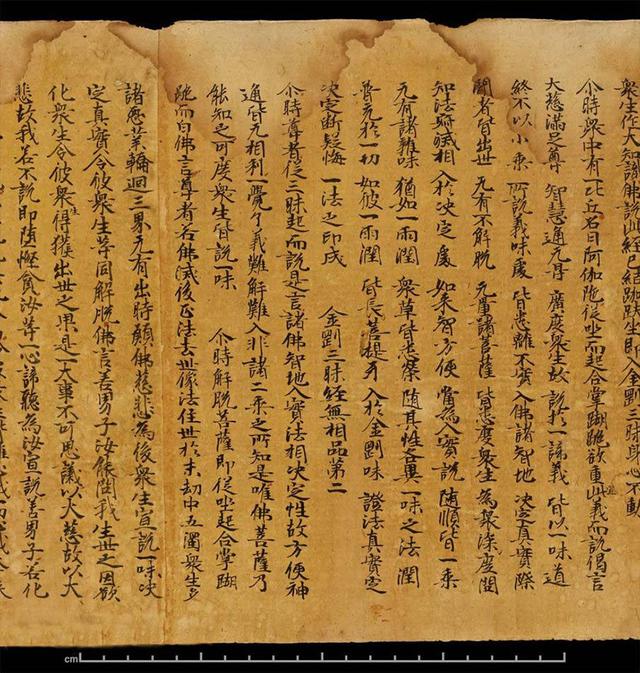 衆生作大知識佛説此經已結跏趺坐即入金剛三昧身心不動
尒時衆中有一比丘名曰阿伽陀從坐而起合掌䠒跪欲重宣此義而説偈言
大慈滿足尊 智慧通无㝵 廣度衆生故 説於一諦義 皆以一味道
終不以小乘 所説義味處 皆悉離不實 入佛諸智地 決定真實際
聞者皆出世 无有不解脱 无量諸菩薩 皆悉度衆生 為衆深度問
知法寂滅相 入於決定處 如来智方便 當為入實説 随順皆一乘
无有諸雜味 猶如一雨潤 衆草皆悉榮 随其性各異 一味之法潤
普充於一切 如彼一雨潤 皆長菩提牙 入於金剛味 證法真實定
決定斷疑悔 一法之印成 金剛三昧經無相品第二
尒時尊者從三昧起而説是言諸佛智地入實法相決定性故方便神
通皆无相利一覺了義難解難入非諸二乘之所知是唯佛菩薩乃
能知之可度衆生皆説一味 尒時解脱菩薩即從坐起合掌䠒
跪而白佛言尊者若佛滅後正法去世像法住世於末劫中五濁衆生多
諸惡業輪迴三界无有出時願佛慈悲為後衆生宣説一味決
定真實令彼衆生等同解脱佛言善男子汝能問我出世之因欲
化衆生令彼衆生得獲出世之果是一大事不可思議以大慈故以大
悲故我若不説即墮慳貪汝等一心諦聽為汝宣説善男子若化
cm